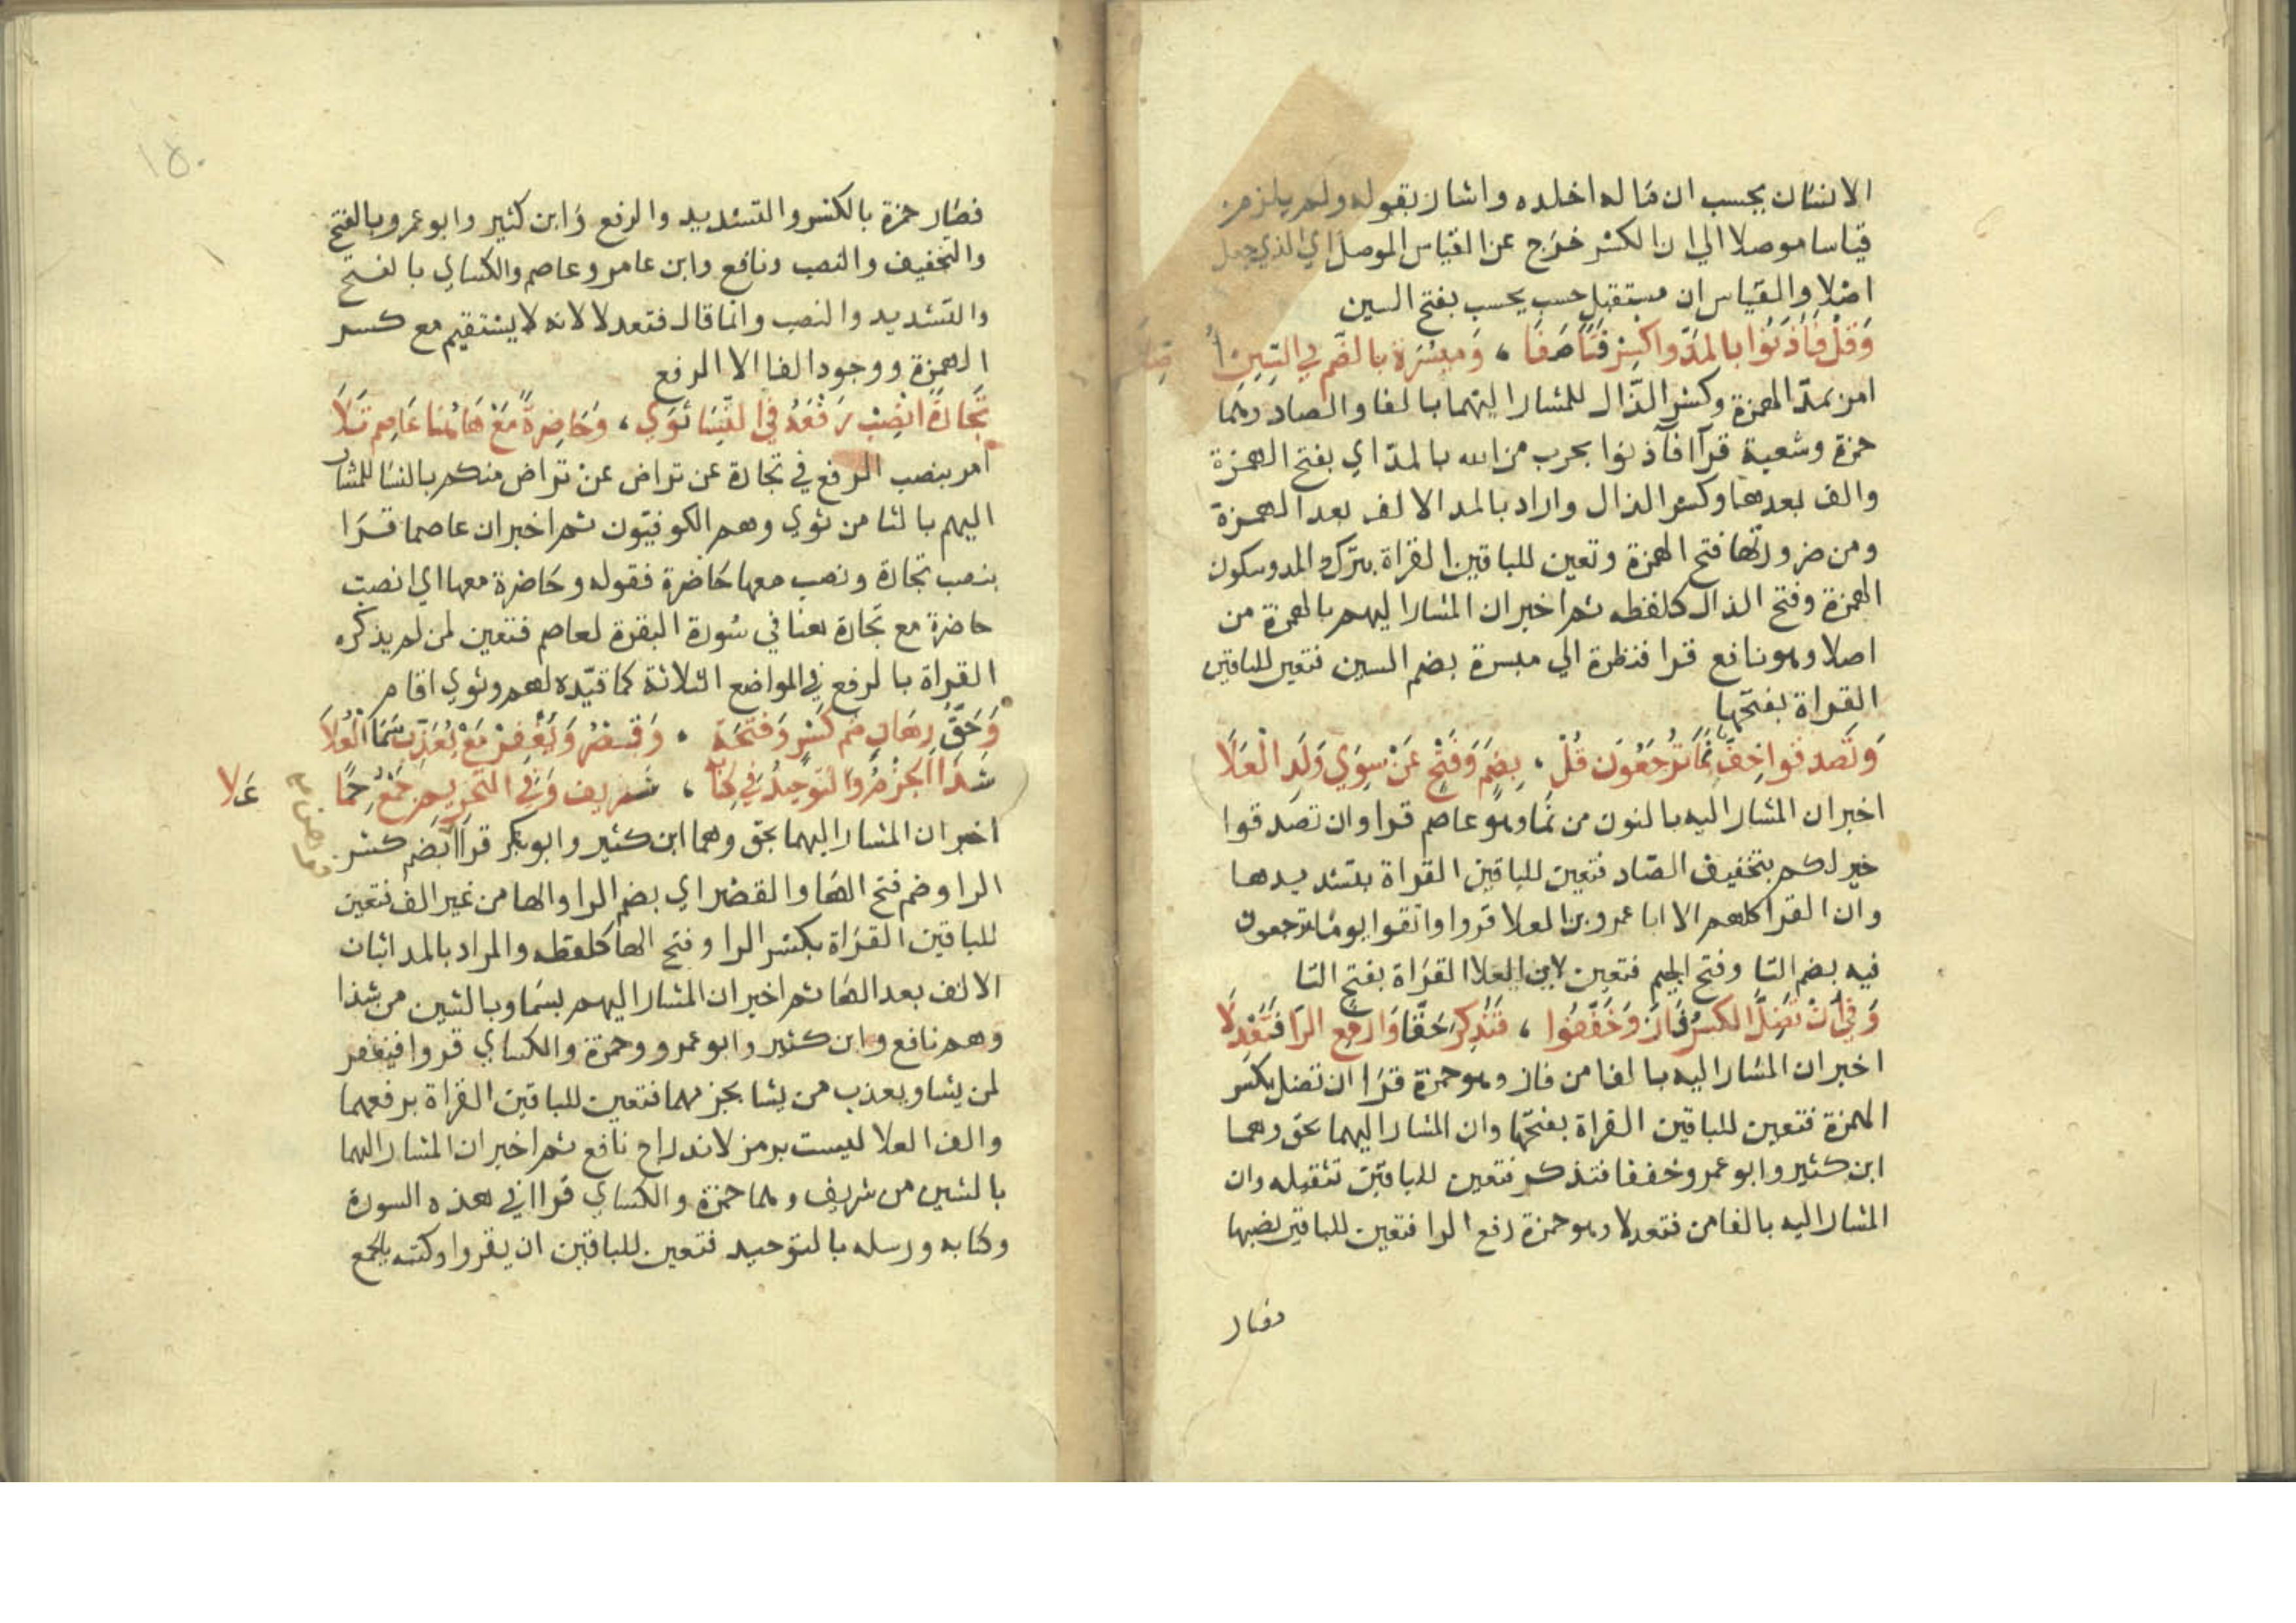 الانسان يحسب ان ماله اخلده واشار بقوله ولم يلزم
قياسا موصلا الي ان الكسر خرج عن القياس الموصل اي الذي جعل
اصلا والقياس ان مستقبل حسب يحسب بفتح السين
وَقُلْ فَأْذَنُوا بالمد واكسر فتًا صفا ، وميسرة بالضم في السين أ صلا
امر بمد الهمزة وكسر الذال للمشار اليهما بالفا والصاد وهما
حمزة وشعبة قرآ فآذنوا بحرب من الله بالمد اي بفتح الهمزة
والف بعدها وكسر الذال واراد بالمد الالف بعد الهمزة
ومن ضرورتها فتح الهمزة وتعين للباقين القراة بترك المد وسكون
الهمزة وفتح الذال كلفظه ثم اخبر ان المشار اليهم بالهمزة من
اصلا وهو نافع قرا فنظرة الي ميسرة بضم السين فتعين للباقين
القراة بفتحها
وتصدقوا خِفٌّ نَمَا تُرْجَعُونَ قُلْ ، بضم وفتح عن سوي ولد العلا
اخبر ان المشار اليه بالنون من نما وهو عاصم قرا وان تصدقوا
خير لكم بتخفيف الصاد فتعين للباقين القراة بتشديدها
وان القرا كلهم الا ابا عمرو بن العلا قروا واتقوا يوما ترجعون
فيه بضم التا وفتح الجيم فتعين لابن العلا القراة بفتح التا
وفي أن تضل الكسر فاز وخففوا ، فتذكر حقا وارفع الرا فتعدلا
اخبر ان المشار اليه بالفا من فاز وهو حمزة قرا ان تضل بكسر
الهمزة فتعين للباقين القراة بفتحها وان المشار اليهما بحق وهما
ابن كثير وابو عمرو خففا فتذكر فتعين للباقين تثقيله وان
المشار اليه بالفا من فتعدلا وهو حمزة رفع الرا فتعين للباقين نصبها
فصار
١٥٠
فصار حمزة بالكسر والتشديد والرفع وابن كثير وابو عمرو بالفتح
والتخفيف والنصب ونافع وابن عامر وعاصم والكساي بالفتح
والتشديد والنصب وانما قال فتعدلا لانه لا يستقيم مع كسر
الهمزة ووجود الفا الا الرفع
تجارة انصب رفعه في النسا ثوي ، وحاضرة مع هاهنا عاصم تلا
امر بنصب الرفع في تجارة عن تراض عن تراض منكم بالنسا للمشار
اليهم بالثا من ثوي وهم الكوفيون ثم اخبر ان عاصما قرا
بنصب تجارة ونصب معها حاضرة فقوله وحاضرة معها اي انصب
حاضرة مع تجارة هنا في سورة البقرة لعاصم فتعين لمن لم يذكره
القراة بالرفع في المواضع الثلاثة كما قيده لهم وثوي اقام
وحق رهان ضم كسر وفتحة ، وقصر ويغفر مع يعذب سما العلا
شذا الجزم والتوحيد في كتابه ، شريف وفي التحريم جمع حما
علا
اخبر ان المشار اليهما بحق وهما ابن كثير وابو عمرو قرآ بضم كسر
الرا وضم فتح الها والقصر اي بضم الرا والها من غير الف فتعين
للباقين القراة بكسر الرا وفتح الها كلفظه والمراد بالمد اثبات
الالف بعد الها ثم اخبر ان المشار اليهم بسما وبالشين من شذا
وهم نافع وابن كثير وابو عمرو وحمزة والكساي قروا فيغفر
لمن يشا ويعذب من يشا بجزمهما فتعين للباقين القراة برفعهما
والف العلا ليست برمز لاندراج نافع ثم اخبر ان المشار اليهما
بالشين من شريف وهما حمزة والكساي قرا في هذه السورة
وكتابه ورسله بالتوحيد فتعين للباقين ان يقروا وكتبه بالجمع